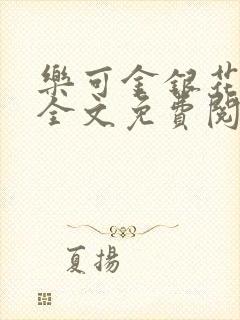 樂可金銀花
全文免費閱
夏揚